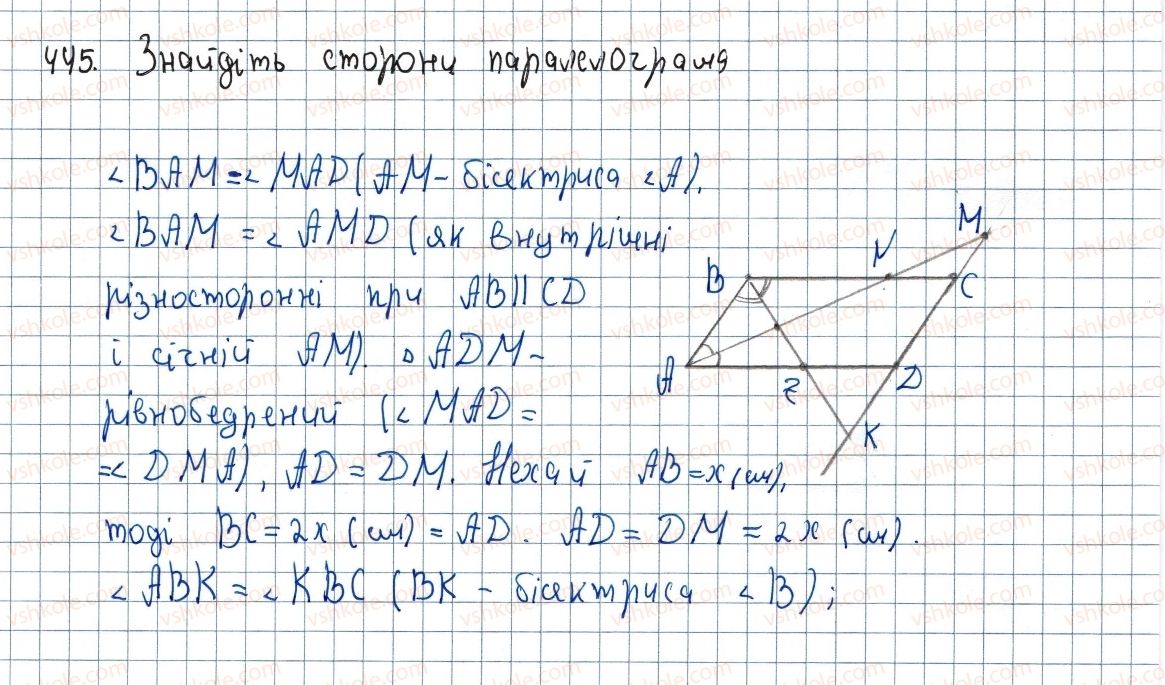 445. Знайдіть сторони паралелограма
∠BAM = ∠MAD (AM – бісектриса ∠A).
∠BAM = ∠AMD (як внутрішні
різносторонні при AB || CD
і січній AM). △ADM –
рівнобедрений (∠MAD =
= ∠DMA), AD = DM. Нехай AB = x (см),
тоді BC = 2x (см) = AD. AD = DM = 2x (см).
∠ABK = ∠KBC (BK – бісектриса ∠B);
M
B N C
A E D
K
vshkole.com